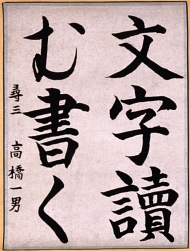 文字讀
む書く
尋三 高橋一男